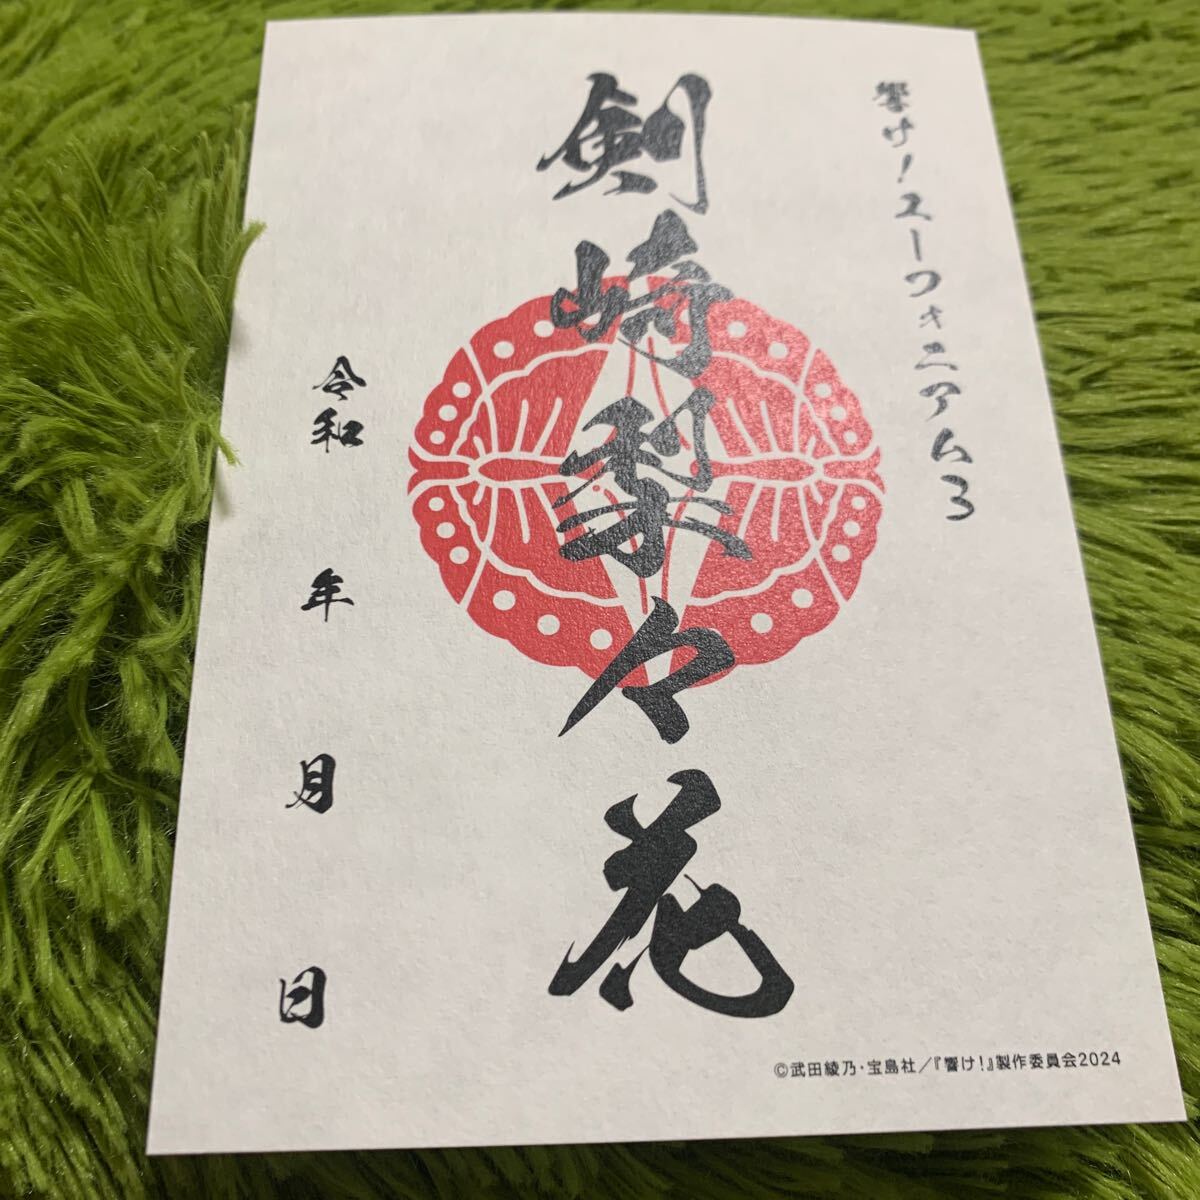 響け！ユーフォニアム3
剣崎梨々花
令和　年　月　日
©武田綾乃・宝島社／『響け！』製作委員会2024